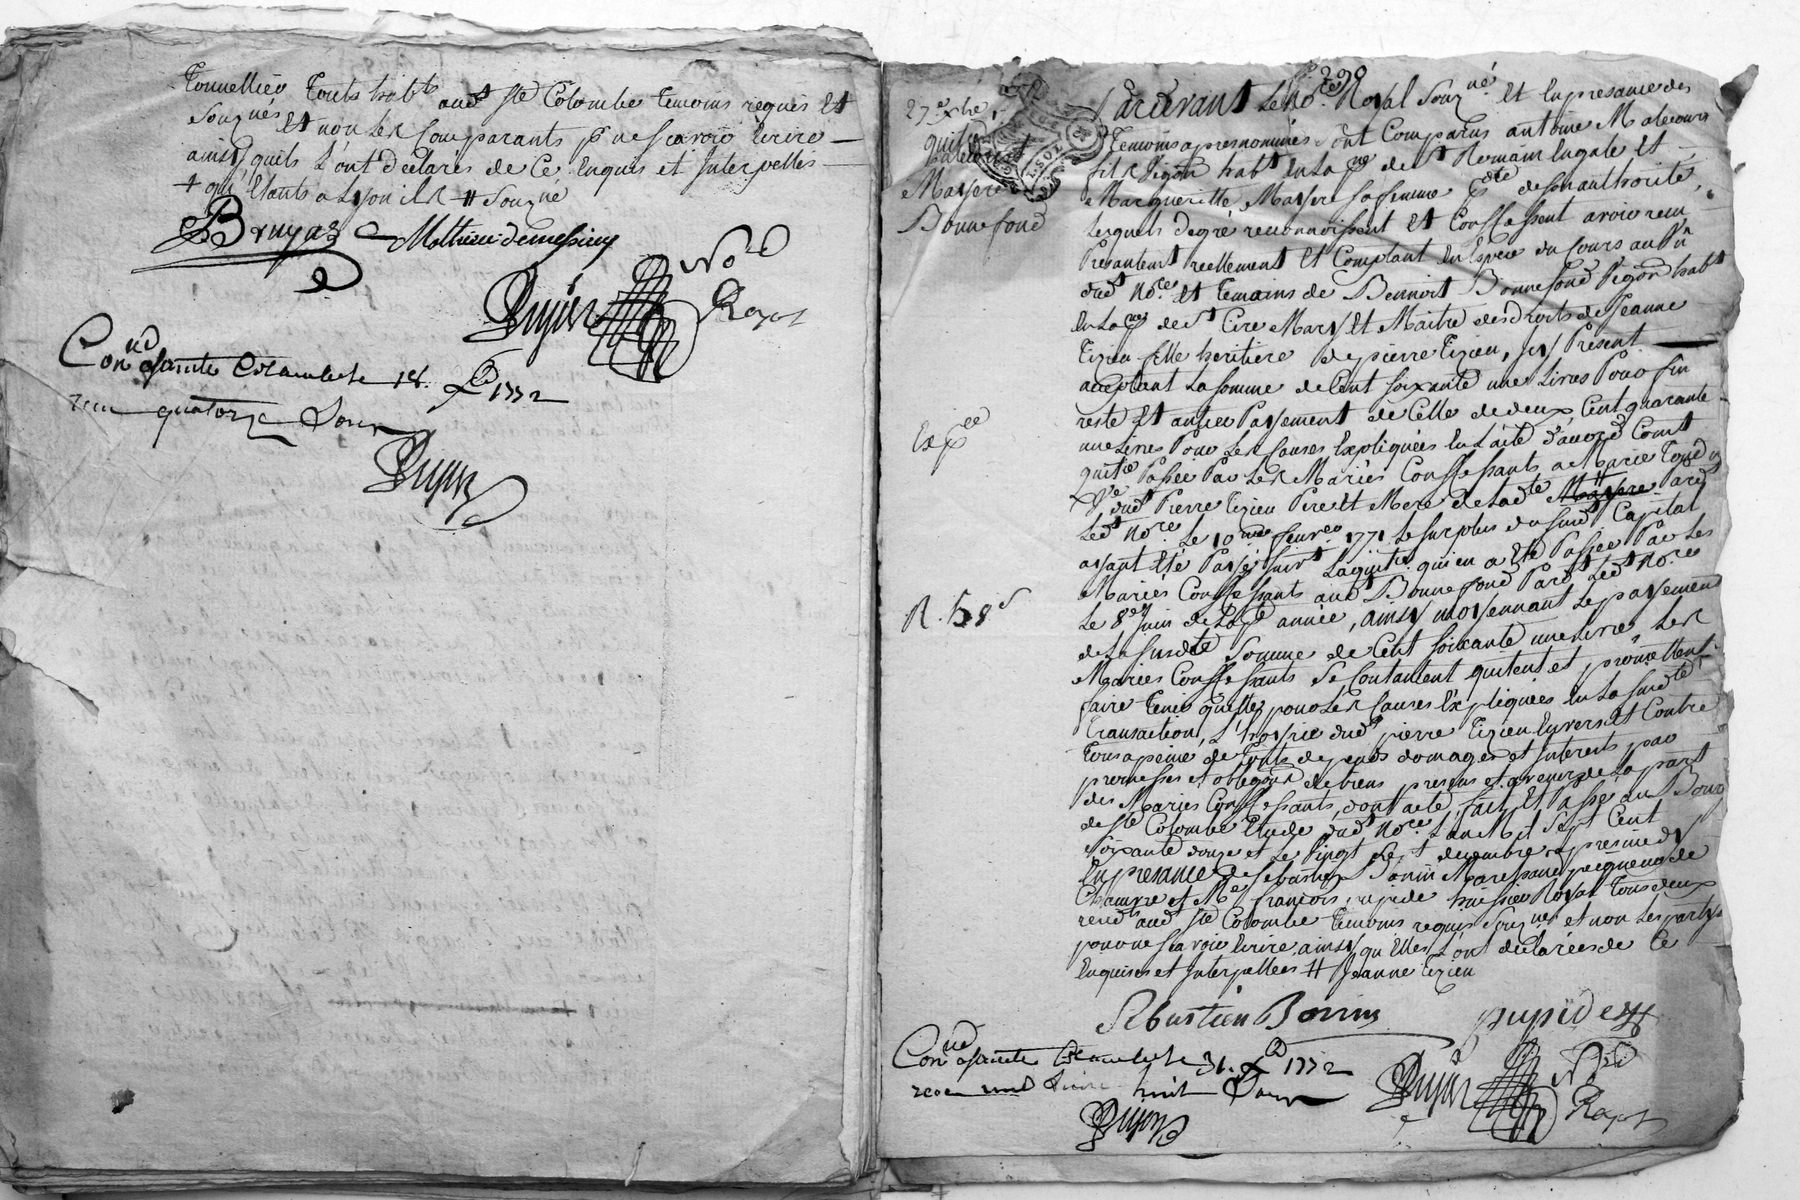 Tonnellier Touts habts aud Ste Colombe temoins requis Et
Souznés Et non Les Comparants pr ne scavoir Ecrire
ainsy quils L'ont déclarés de Ce Enquis et Interpellés
+ qu'Etants a Lyon # Souzné
Bruyaz Mathieu demessieux
Dujast Nore Royal
Con né a Sainte Colombe le 18. xbre 1772
recu quatorze Sous
Dujast
290
27e xbre
quitce
Malecourt
Massere
Bonnefond
Expée
R. 1 # 8 s
Pardevant Le Nore Royal Souzné Et En presance des
Temoins apres nommés sont Comparus antoine Malecourt
fils Vigon habt En La psse de St Romain En gale Et
Marguerite Massere sa femme de son authorité,
Lesquels de gré reconnoissent Et Confessent avoir recu
Presantemt reellement Et Comptant En Espece du Cours au Pnt
dud Nore et temoins de Bennoit Bonnefond Vigon habt
En La psse de St Cire Mary Et Maitre des droits de Jeanne
Tizieu fille heritiere de pierre Tizieu, Icy Present
acceptant La somme de Cent Soixante une Livres Pour fin
reste Et entier Payement de Celle de deux Cent quarante
une Livres Pour Les Causes Expliquées En L'acte d'accord Cont
quitce Passée Par Les Mariés Confessants a Marie
Ve dud Pierre Tizieu Pere Et Mere de Lade Massere Pard
Led Nore Le 10me fevrer 1771 Le surplus du sud Capital
ayant Eté Payé suivt La quitce qui En a Eté Passée Par Les
Mariés Confessants aud Bonnefond Pard Led Nore
Le 8e Juin de La pte année, ainsy moyennant Le payement
de La susdte Somme de Cent Soixante une Livres Les
Mariés Confessants Se Contantent quittent et promettent
faire Tenir quitte pour Les Causes Expliquées En La susdte
Transaction, L'hoyrie dud pierre Tizieu Envers Et Contre
Tous a peine de Touts depends domages et Interets par
promesses et obligons de biens presens et avenir de La part
des Mariés Confessants, dont acte, fait Et Passé au Bourg
de Ste Colombe Etude dud Nore L'an Mil Sept Cent
Soixante douze et Le Vingt Sept decembre apres midy
En presance de Sebastien Bonin Marchand peigneur de
Chanvre et Me françois rupide huissier Royal Tous deux
resid aud Ste Colombe Temoins requis Souznés et non Les partys
pour ne scavoir Ecrire ainsy qu'Elles L'ont déclarées de Ce
Enquises et Interpellées # Jeanne Tizieu
Sebastien Bonin
Dujast Nore Royal
Con né a Sainte Colombe le 31. xbre 1772
recu une Livre huit Sous
Dujast